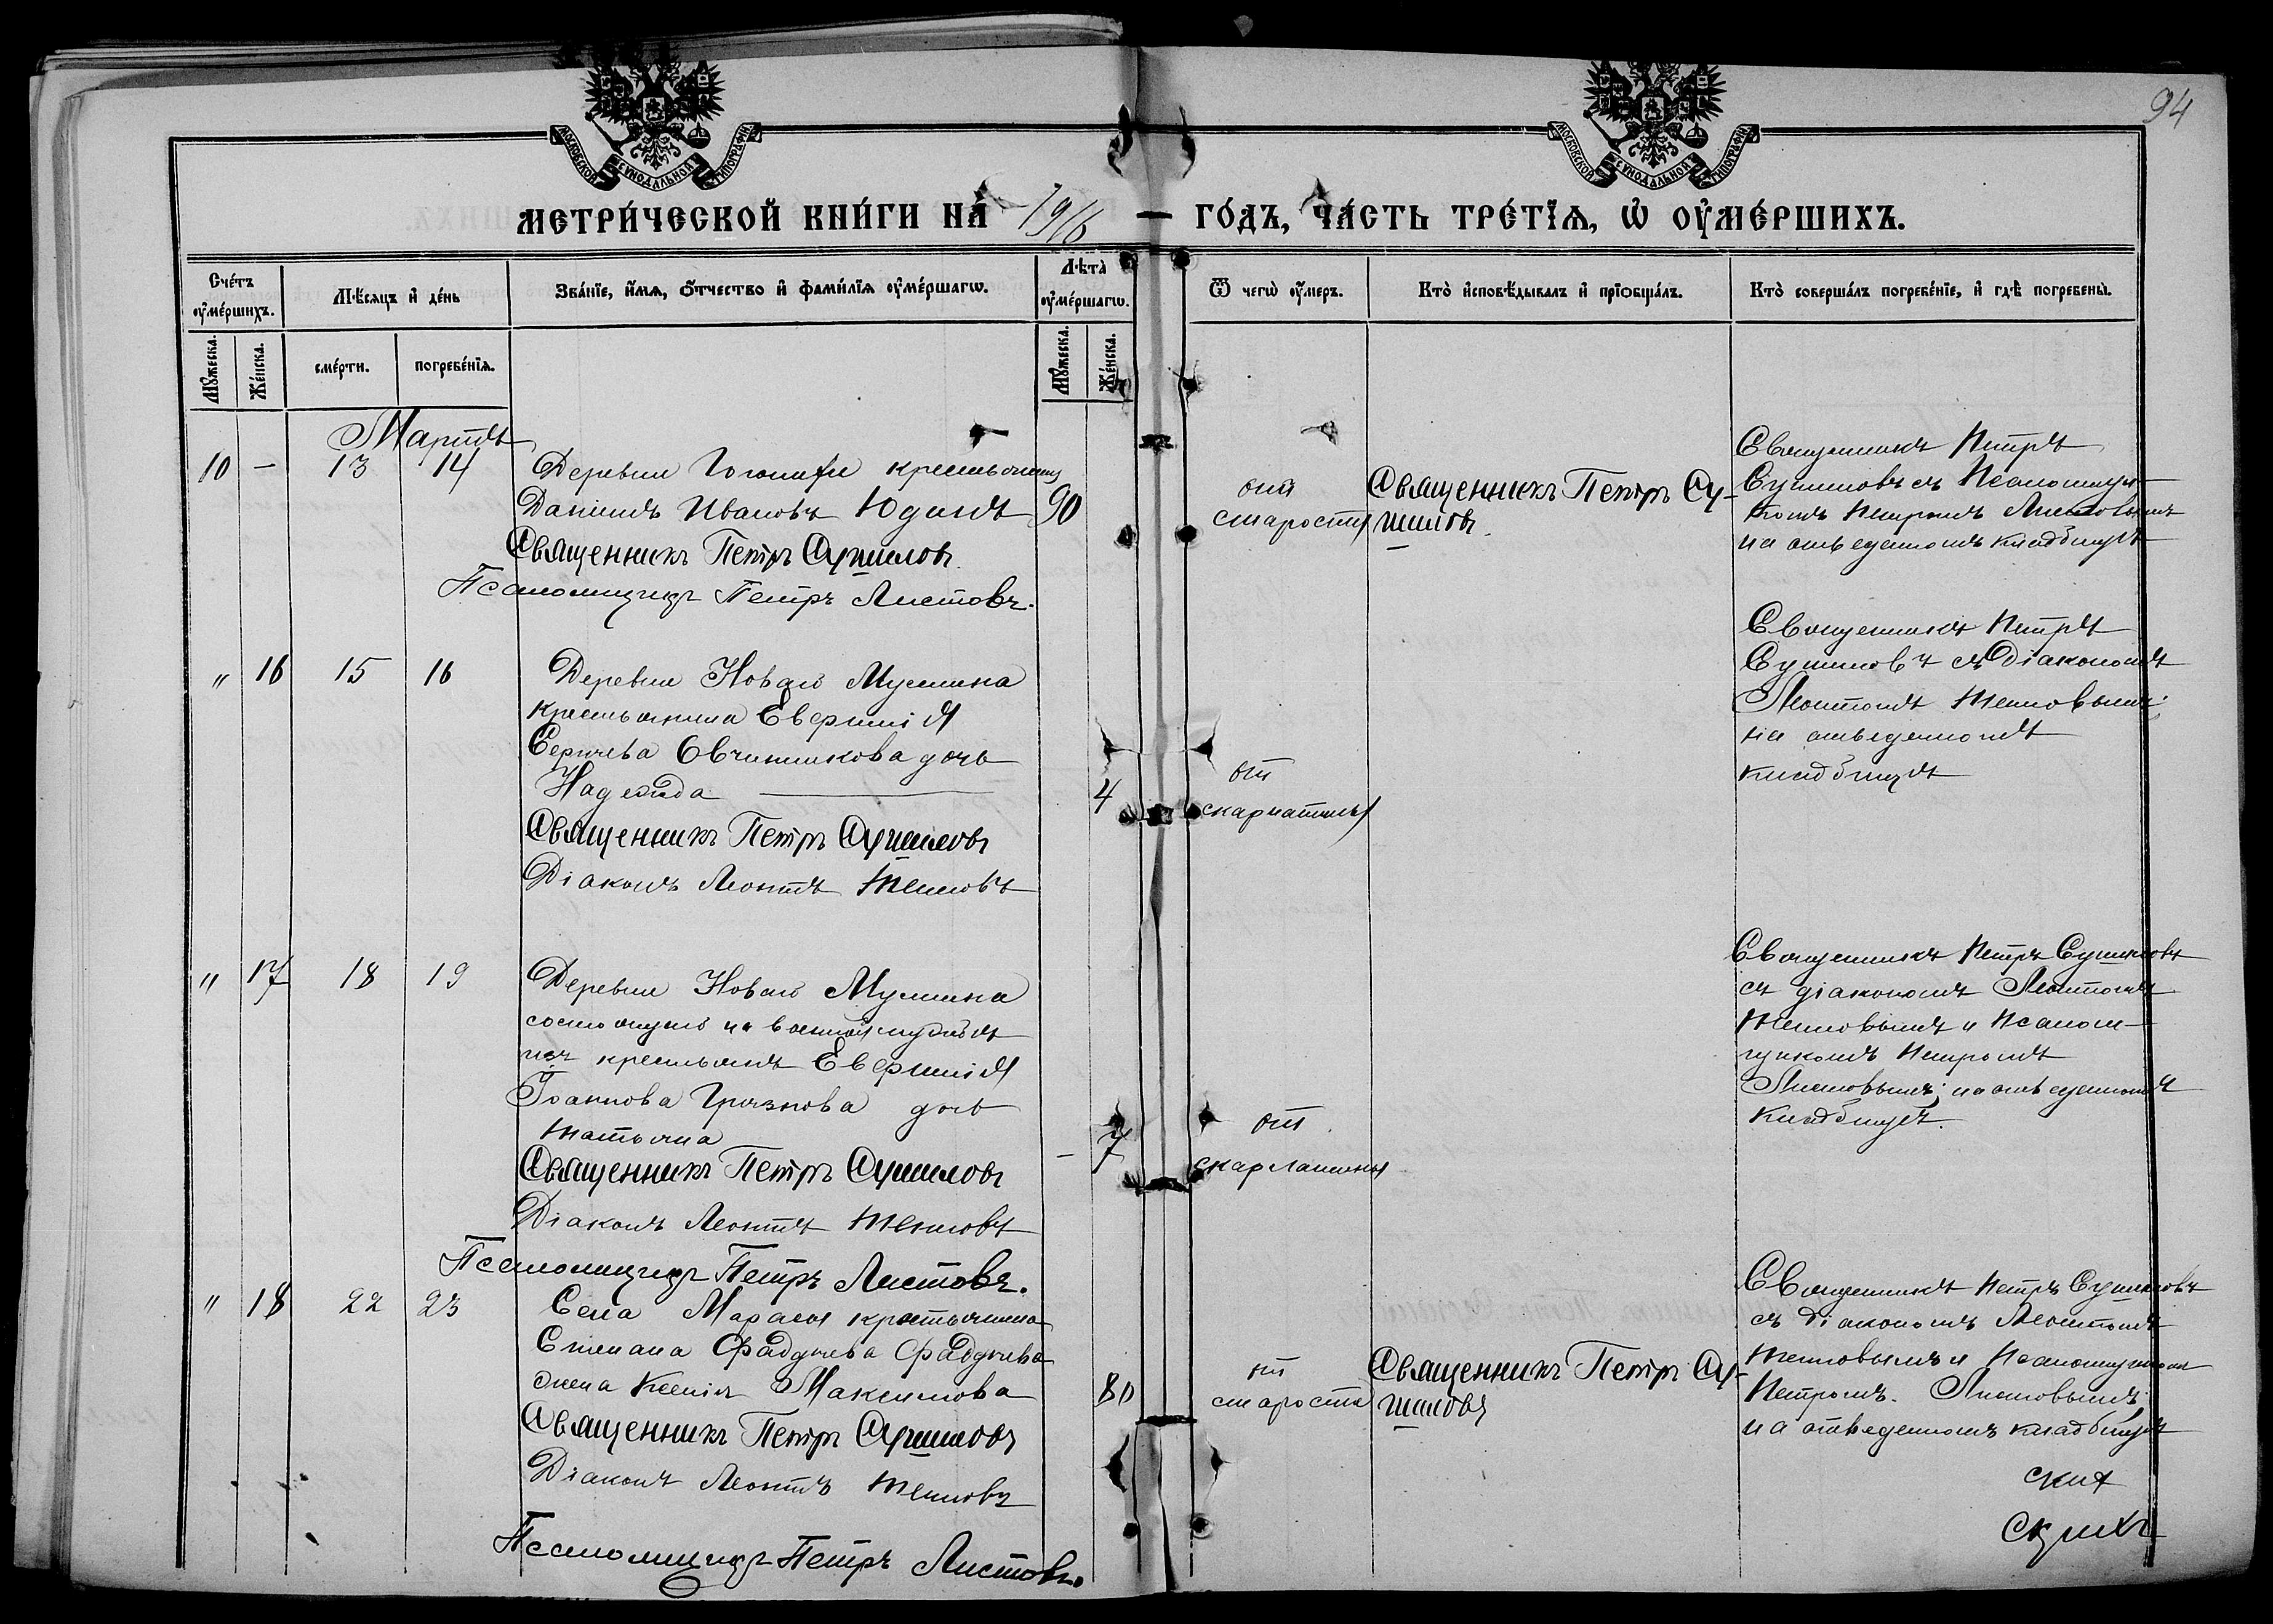 94
МОСКОВСКОЙ СѴНОДАЛЬНОЙ ТИПОГРАФІИ
МОСКОВСКОЙ СѴНОДАЛЬНОЙ ТИПОГРАФІИ
МЕТРИ́ЧЕСКОЙ КНИ́ГИ НА̀ 1916 ГО́ДЪ, ЧА́СТЬ ТРЕ́ТЇѦ, Ѡ҆ ОУ҆МЕ́РШИХЪ.
Сче́тъ оу҆ме́ршихъ.
Мѣ́сяцъ и҆ де́нь
Зва́нїе, и҆́мя, ѻ҆́тчество и҆ фами́лїя оу҆ме́ршагѡ.
Лѣ́та оу҆ме́ршагѡ.
Ѿ чегѡ̀ оу҆́меръ.
Кто̀ и҆сповѣ́дывалъ и҆ прїѡбща́лъ.
Кто̀ соверша́лъ погребе́нїе, и҆ гдѣ̀ погребены̀.
Мꙋ́жеска.
Же́нска.
сме́рти.
погребе́нїя.
Мꙋ́жеска.
Же́нска.
Мартъ
10 — 13 14
Деревни крестьянинъ
Даніилъ Ивановъ Юдинъ 90
Священникъ Петръ Сушиловъ.
Псаломщикъ Петръ Листовъ.
отъ
старости
Священникъ Петръ Су-
шиловъ.
Священникъ Петръ
Сушиловъ съ Псаломщи-
комъ Петромъ Листовымъ
на отведенномъ кладбищѣ
" 16 15 16
Деревни Новой Муслина
крестьянина Евфимія
Сергѣева Овчинникова дочь
Надежда 4
Священникъ Петръ Сушиловъ
Діаконъ Леонтъ Тепловъ
отъ
скарлатины
Священникъ Петръ
Сушиловъ съ Діакономъ
Леонтомъ Тепловымъ;
на отведенномъ
кладбищѣ
" 17 18 19
Деревни Новой Муслина
состоящаго на военной службѣ
изъ крестьянъ Евфимія
Іоаннова Грязнова дочь
Татьяна — 7
Священникъ Петръ Сушиловъ
Діаконъ Леонтъ Тепловъ
Псаломщикъ Петръ Листовъ.
отъ
скарлатины
Священникъ Петръ Сушиловъ
съ діакономъ Леонтомъ
Тепловымъ и Псалом-
щикомъ Петромъ
Листовымъ; на отведенномъ
кладбищѣ.
" 18 22 23
Села Марасы крестьянина
Степана Фаддѣева Фаддѣева
жена Ксенія Максимова 80
Священникъ Петръ Сушиловъ
Діаконъ Леонтъ Тепловъ
Псаломщикъ Петръ Листовъ.
отъ
старости
Священникъ Петръ Су-
шиловъ
Священникъ Петръ Сушиловъ
съ діакономъ Леонтомъ
Тепловымъ и Псаломщикомъ
Петромъ Листовымъ;
на отведенномъ кладбищѣ